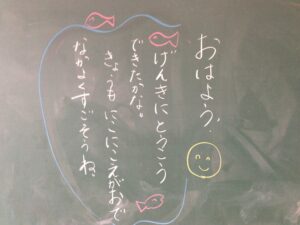 おはよう。
げんきにとうこう
できたかな。
きょうもにこにこえがおで
なかよくすごそうね。